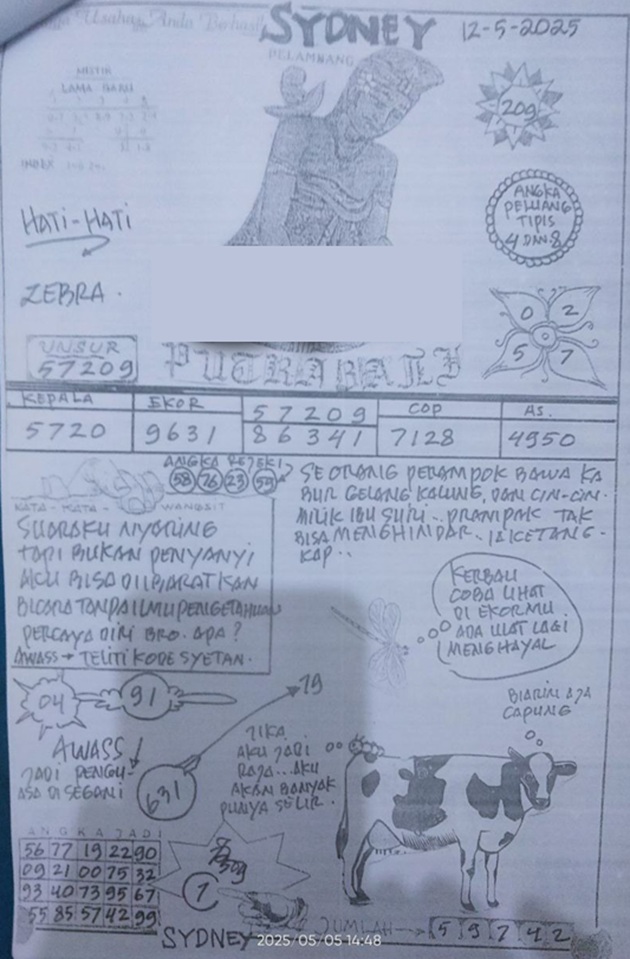 Usaha Anda Berhasil
SYDNEY
12-5-2025
PELAMNANG
MISTIK
LAMA BARU
INDEX
209
HATI-HATI
ANGKA
PELUANG
TIPIS
4 DAN 8
ZEBRA.
0 2
5 7
UNSUR
57209
PUTRA BALI
KEPALA EKOR 57209 COP AS.
5720 9631 86341 7128 4950
ANGKA REJEKI
58 76 23 59
KATA-KATA WANGSIT
SUARAKU NYARING
TAPI BUKAN PENYANYI
AKU BISA DIIBARATKAN
BICARA TANPA ILMU PENGETAHUAN
PERCAYA DIRI BRO. APA?
AWASS → TELITI KODE SYETAN.
SEORANG PERAMPOK BAWA KA
BUR GELANG KALUNG, DAN CIN-CIN.
MILIK IBU SURI.. PRAMPAK TAK
BISA MENGHINDAR.. IA KETANG-
KAP..
KERBAU
COBA LIHAT
DI EKORMU
ADA ULAT LAGI
MENGHAYAL
04
91
19
BIARIN AJA
CAPUNG
AWASS!
JADI PENGU-
ASA DI SEGANI
631
JIKA
AKU JADI
RAJA...AKU
AKAN BANYAK
PUNYA SELIR.
ANGKA JADI
56 77 19 22 90
09 21 00 75 32
93 40 73 95 67
55 85 57 42 99
1
SYDNEY
JUMLAH → 5 9 7 4 2
2025/05/05 14:48